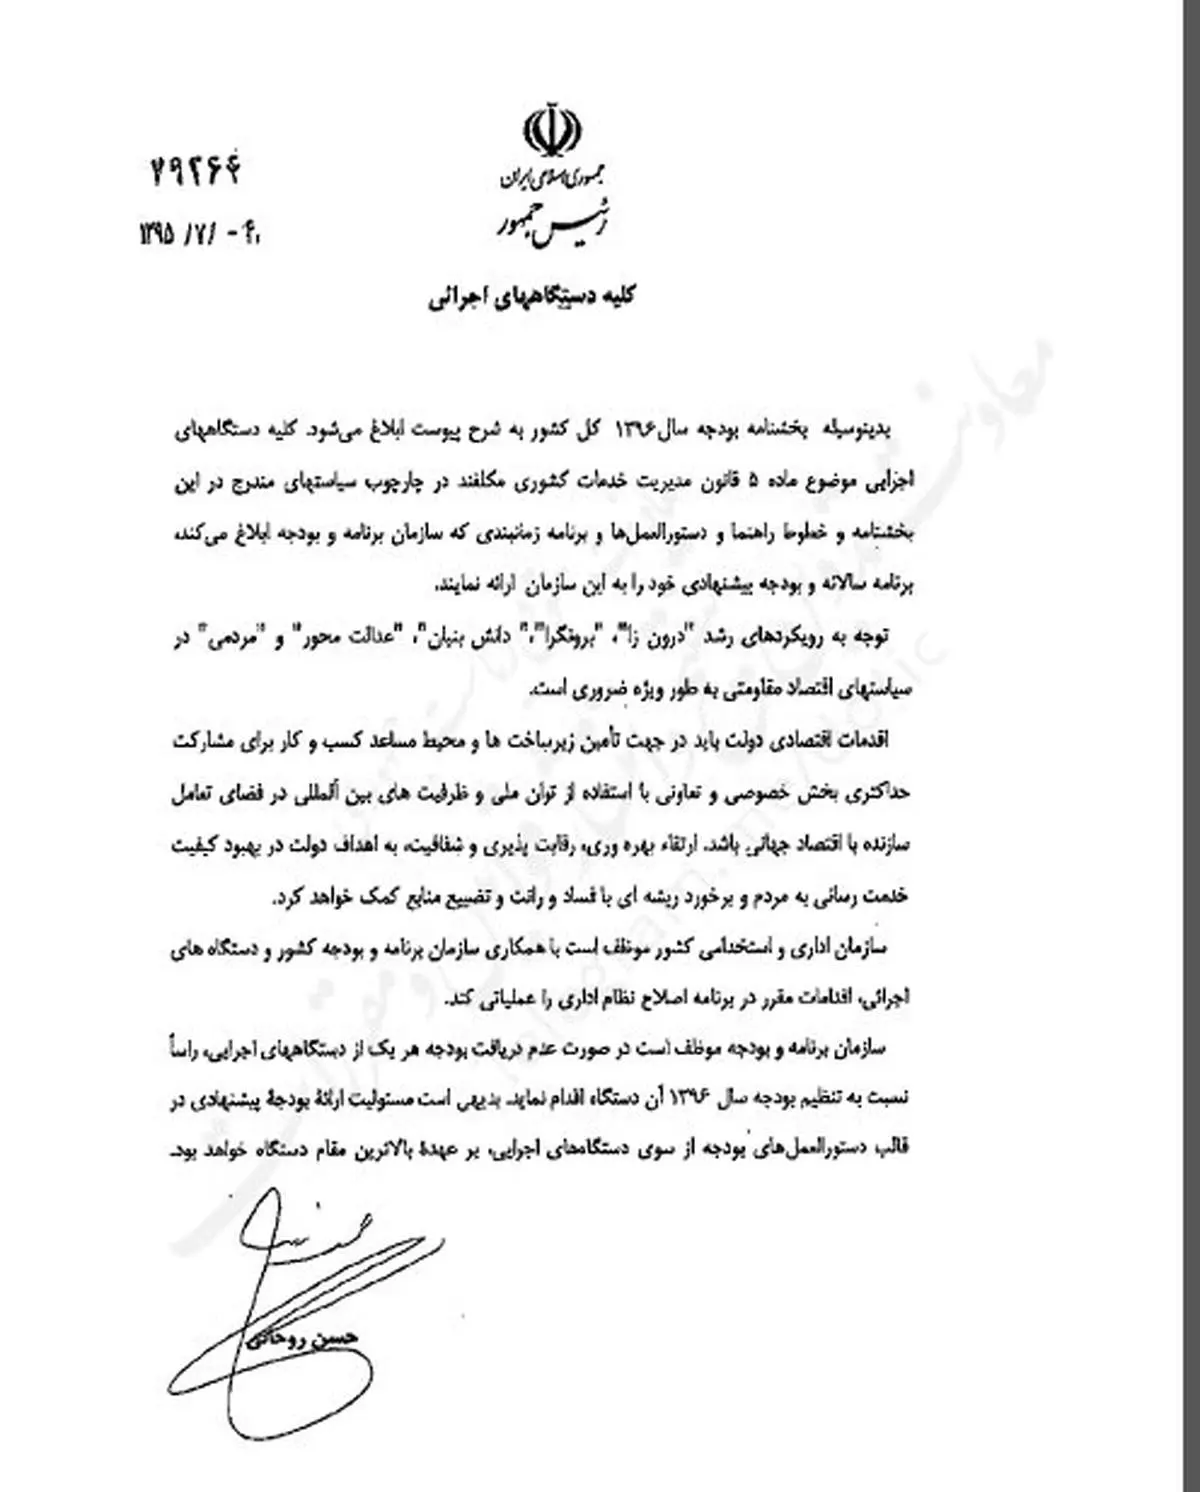 جمهوری اسلامی ایران
رئیس جمهور
۷۹۲۶۴
۱۳۹۵ /۷/ -۴
کلیه دستگاههای اجرائی
بدینوسیله بخشنامه بودجه سال ۱۳۹۶ کل کشور به شرح پیوست ابلاغ می‌شود. کلیه دستگاههای
اجرایی موضوع ماده ۵ قانون مدیریت خدمات کشوری مکلفند در چارچوب سیاستهای مندرج در این
بخشنامه و خطوط راهنما و دستورالعمل‌ها و برنامه زمانبندی که سازمان برنامه و بودجه ابلاغ می‌کند،
برنامه سالانه و بودجه پیشنهادی خود را به این سازمان ارائه نمایند.
توجه به رویکردهای رشد "درون زا"، "برونگرا"،" دانش بنیان"، "عدالت محور" و "مردمی" در
سیاستهای اقتصاد مقاومتی به طور ویژه ضروری است.
اقدمات اقتصادی دولت باید در جهت تأمین زیرساخت ها و محیط مساعد کسب و کار برای مشارکت
حداکثری بخش خصوصی و تعاونی با استفاده از توان ملی و ظرفیت های بین المللی در فضای تعامل
سازنده با اقتصاد جهانی باشد. ارتقاء بهره وری، رقابت پذیری و شفافیت، به اهداف دولت در بهبود کیفیت
خدمت رسانی به مردم و برخورد ریشه ای با فساد و رانت و تضییع منابع کمک خواهد کرد.
سازمان اداری و استخدامی کشور موظف است با همکاری سازمان برنامه و بودجه کشور و دستگاه های
اجرائی، اقدامات مقرر در برنامه اصلاح نظام اداری را عملیاتی کند.
سازمان برنامه و بودجه موظف است در صورت عدم دریافت بودجه هر یک از دستگاههای اجرایی، راساً
نسبت به تنظیم بودجه سال ۱۳۹۶ آن دستگاه اقدام نماید. بدیهی است مسئولیت ارائۀ بودجۀ پیشنهادی در
قالب دستورالعمل‌های بودجه از سوی دستگاه‌های اجرایی، بر عهدۀ بالاترین مقام دستگاه خواهد بود.
حسن روحانی